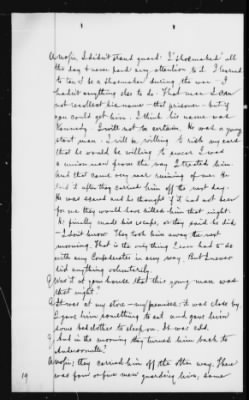 A. No sir, I didn't stand guard: I "shoemaked" all
the day & never paid any attention to it. I learned
to tan & be a shoemaker during the war - I
hadn't anything else to do. That man - I can
not recollect his name - that prisoner - but if
you could get him. I think his name was
Kennedy. I will not be certain. He was a young
stout man. I will be willing to risk my case
that he would be willing to swear I was
a union man from the way I treated him.
And that came very near ruining of me. He
it after they carried him off the next day.
He was scared and he thought if it had not been
for me they would have killed him that night.
He finally made his escape, or they said he did.
- I don't know. They took him away the next
morning. That is the only thing I ever had to do
with any Confederates in any way. But I never
did anything voluntarily.
Q. Was it at your house that this young man was
that night?
A. It was at my store - my premises - it was close by.
I gave him something to eat and gave him
some bed clothes to sleep on. It was cold.
Q. And in the morning they turned him back to
A. No sir; they carried him off the other way. There
was four or five men guarding him, some
19